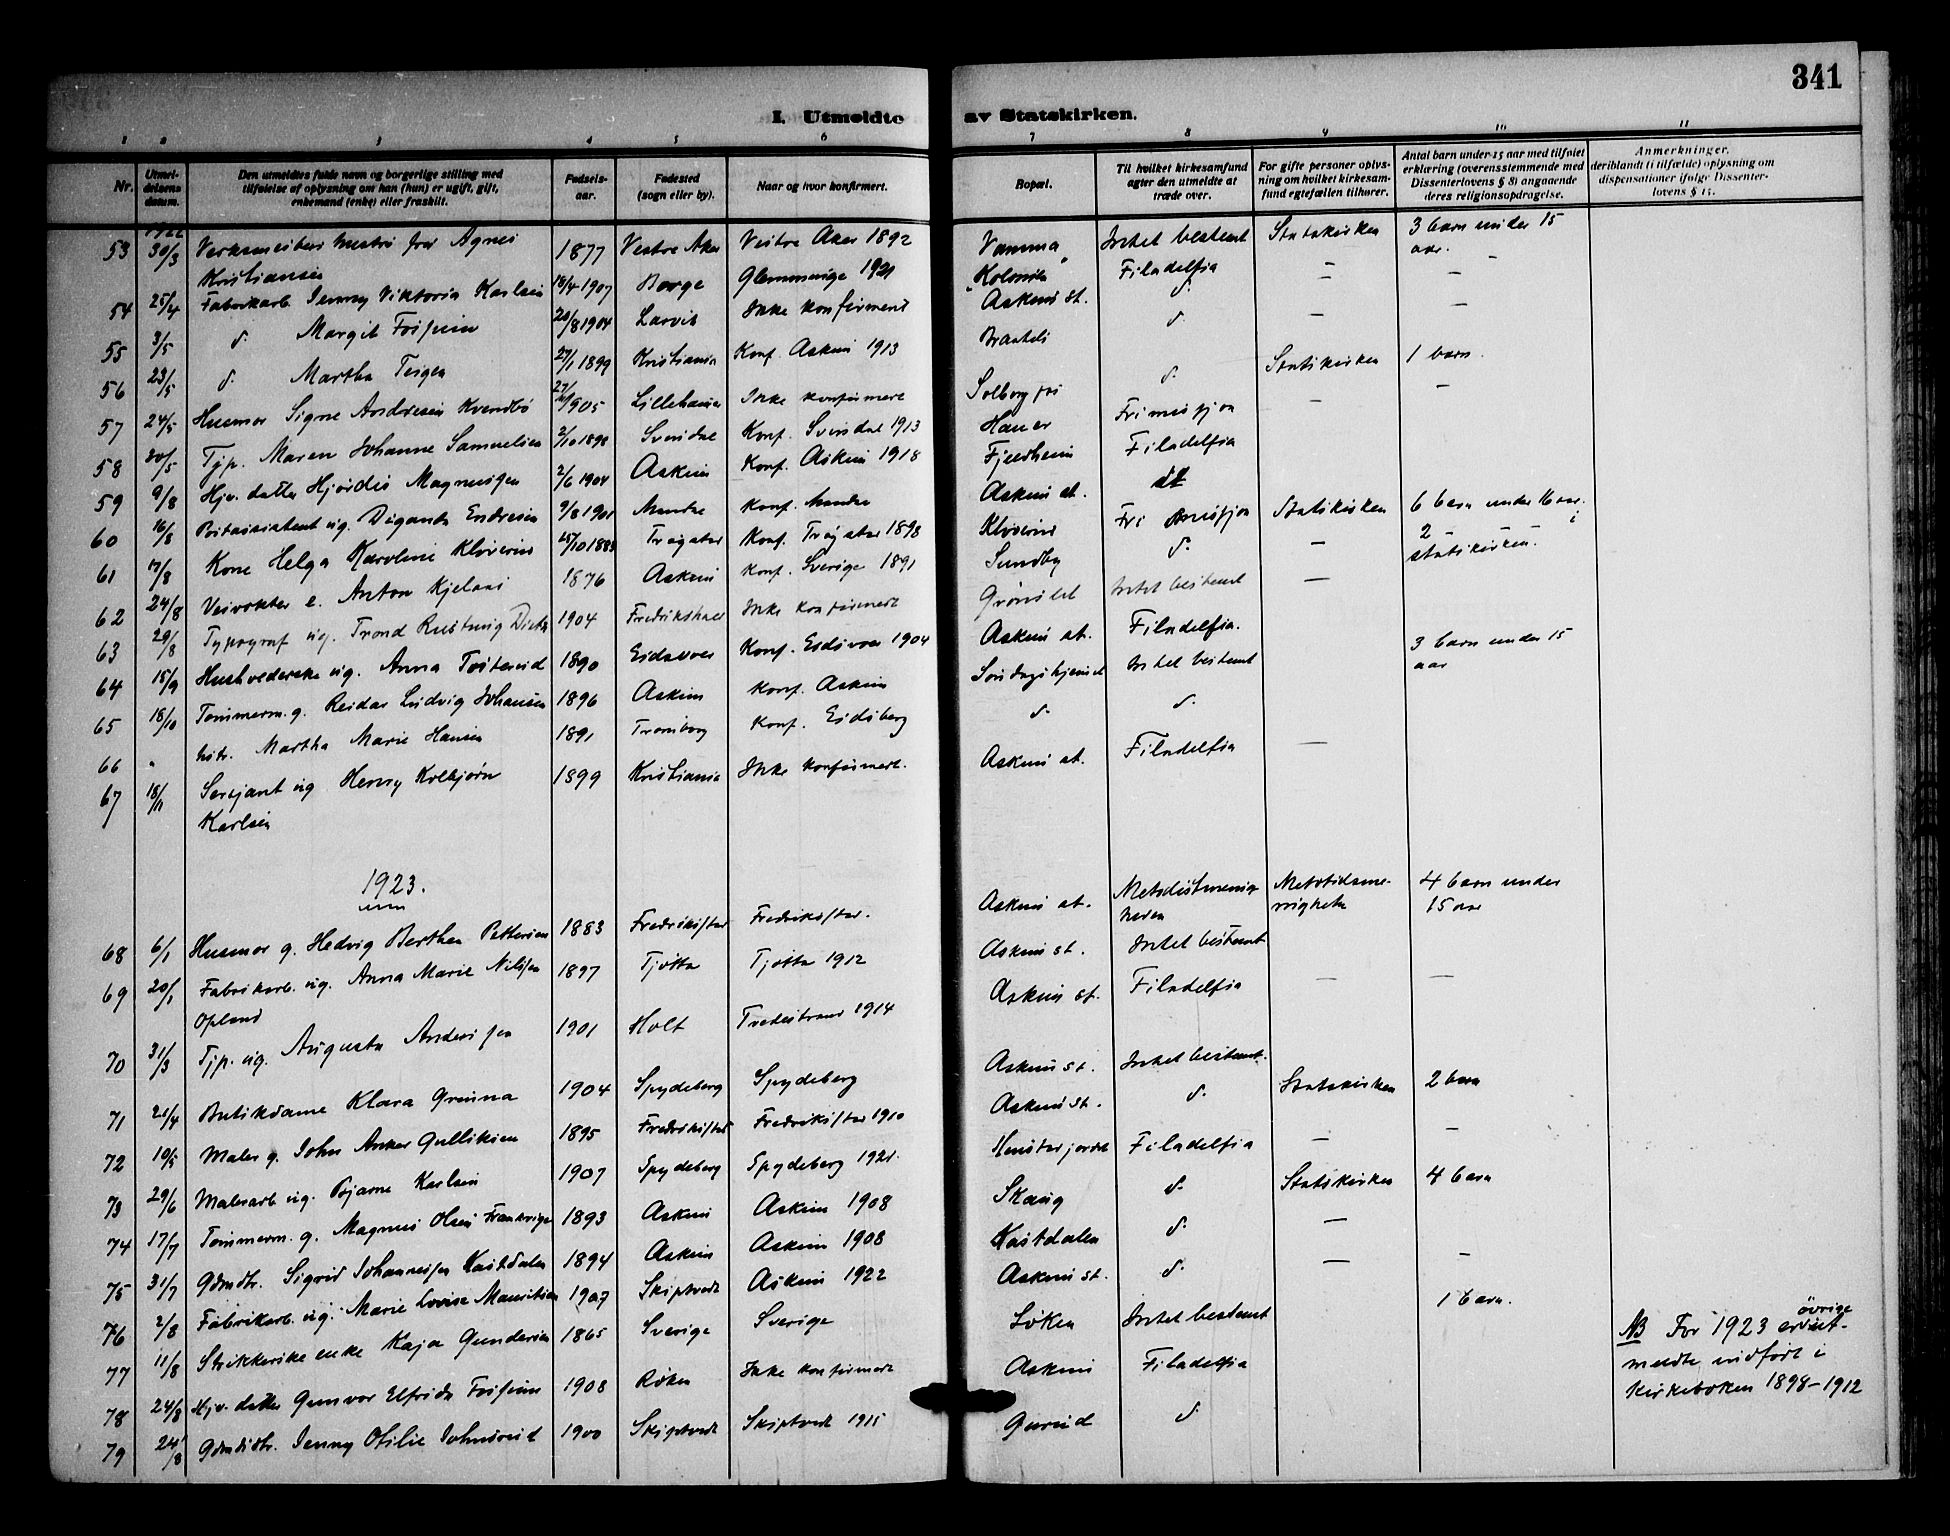 341
I. Utmeldte av Statskirken.
1 2 3 4 5 6 7 8 9 10 11
Nr. | Utmeldelsens datum. | Den utmeldtes fulde navn og borgerlige stilling med tilføielse af oplysning om han (hun) er ugift, gift, enkemand (enke) eller fraskilt. | Fødselsaar. | Fødested (sogn eller by). | Naar og hvor konfirmert. | Bopæl. | Til hvilket kirkesamfund agter den utmeldte at træde over. | For gifte personer oplysning om hvilket kirkesamfund egtefællen tilhører. | Antal barn under 15 aar med tilføiet erklæring (overensstemmende med Dissenterlovens § 8) angaaende deres religionsopdragelse. | Anmerkninger, deriblandt (i tilfælde) oplysning om dispensationer ifølge Dissenterlovens § 15.
1922
53 30/3 Verksmester frue Agnes Kristiansen 1877 Vestre Aker Vestre Aker 1892 Vamma Kolonien Intet bestemt Statskirken 3 barn under 15 aar.
54 25/4 Fabrikarb. Jenny Viktoria Karlsen 18/4 1907 Borge Glemminge 1921 Askim st. Filadelfia – –
55 3/5 d. Margit Fossum 20/8 1904 Larvik Ikke konfirmert d. – –
56 23/5 d. Martha Teigen 27/1 1899 Kristiania Konf. Askim 1913 d. –
57 24/5 Husmor Signe Andresen Kvendbø 1905 Lillehammer Ikke konfirmert d. Statskirken 1 barn.
58 20/5 Tjp. Maren Johanne Samuelsen 2/10 1898 Svindal Konf. Svindal 1913 Frimisjon – –
59 9/8 Hjv. datter Hjørdis Magnussen 2/6 1904 Askim Konf. Askim 1918 Fjeldheim Filadelfia
60 16/8 Postassistent ug. Endresen 9/8 1901 Konf. Askim st. dt
61 17/8 Kone Helga Karoline Kloverud 15/10 1883 Trøgstad Konf. Trøgstad 1898 Kloverud Fri misjon Statskirken 6 barn under 16 aar. 2 i statskirken.
62 24/8 Veivokter e. Anton Kjelaas 1876 Askim Konf. Sverige 1891 Sundby d. –
63 29/8 Typograf ug. Trond 1904 Fredrikshald Ikke konfirmert Intet bestemt –
64 15/9 Husholderske ug. Anna 1890 Eidsvoll Konf. Eidsvoll 1904 Askim st. Filadelfia.
65 18/10 Tømmerm. g. Reidar Ludvig Johansen 1896 Askim Konf. Askim Søndagshjemmet Intet bestemt 3 barn under 15 aar
66 " hstr. Martha Marie Hansen 1891 Trømborg Konf. Eidsberg d. d.
67 18/11 Sersjant ug Henry Kolbjørn Karlsen 1899 Kristiania Ikke konfirmert. Askim st. Filadelfia –
1923.
68 6/1 Husmor g. Hedvig Berthea Pettersen 1883 Fredrikstad Fredrikstad. Askim st. Metodistmenigheten Metodistmenigheten 4 barn under 15 aar
69 20/1 Fabrikarb. ug. Anna Marie Nilssen Opland 1897 Tjøtta Tjøtta 1912 Askim st. Intet bestemt
70 31/3 Tjp. ug. Augusta Anderssen 1901 Holt Tvedestrand 1914 Askim st. Filadelfia – –
71 21/4 Butikdame Klara Grinna 1904 Spydeberg Spydeberg Askim st. Intet bestemt.
72 10/5 Maler g. John Anker Gulliksen 1895 Fredrikstad Fredrikstad 1910 Askim st. d. Statskirken 2 barn
73 29/6 Malerarb ug. Bjarne Karlsen 1907 Spydeberg Spydeberg 1921. Filadelfia – –
74 17/7 Tømmerm. g. Magnus Olsen 1893 Askim Askim 1908 Skaug d. Statskirken 4 barn
75 31/7 Gdmdtr. Sigrid Johannessen Kastdalen 1894 Askim Askim 1908 Kastdalen d. –
76 2/8 Fabrikarb. ug. Marie Lovise Mauritsen 1907 Skiptvedt Askim 1922 Askim st. d. – –
77 11/8 Strikkerske enke Kaja Gundersen 1865 Sverige Sverige Løken Intet bestemt 1 barn.
78 24/8 Hjv. datter Gunvor Elfrida Fossum 1908 Ikke konfirmert Askim Filadelfia
79 24/8 Gdmdtr. Jenny Otilie 1900 Skiptvedt Skiptvedt 1915 d.
NB For 1923 øvrige er utmeldte indført i kirkeboken 1898–1912